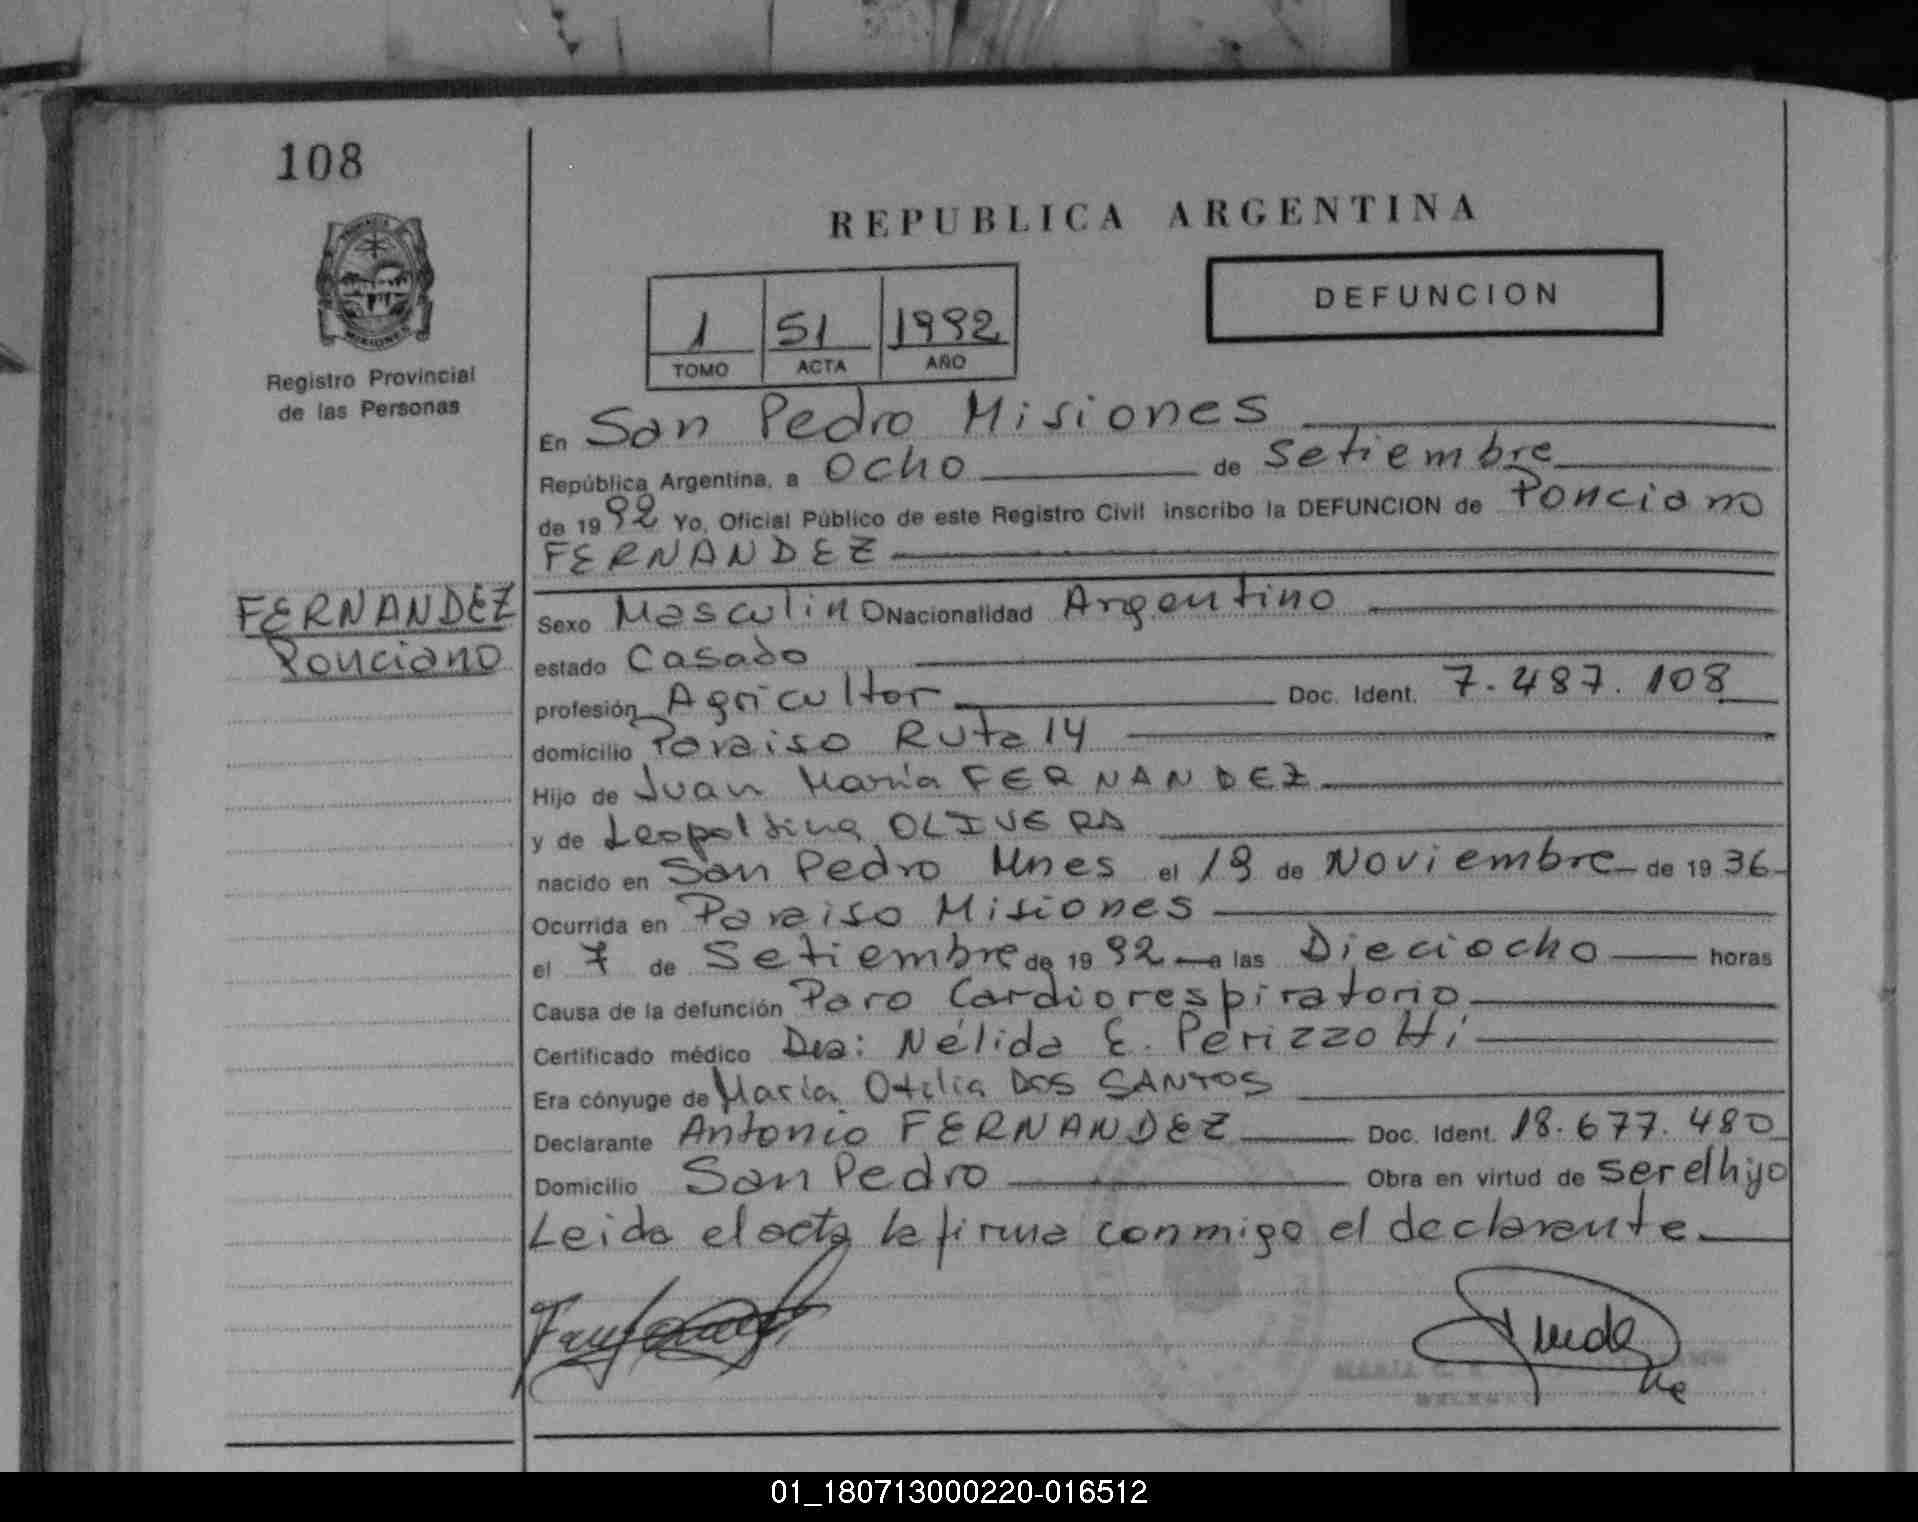 108
PROVINCIA
MISIONES
Registro Provincial
de las Personas
FERNANDEZ
Ponciano
REPUBLICA ARGENTINA
1 51 1992
TOMO ACTA AÑO
DEFUNCION
En San Pedro Misiones
República Argentina, a Ocho de Setiembre
de 1992 Yo, Oficial Público de este Registro Civil inscribo la DEFUNCION de Ponciano
FERNANDEZ
Sexo Masculino Nacionalidad Argentino
estado Casado
profesión Agricultor Doc. Ident. 7.487.108
domicilio Paraiso Ruta 14
Hijo de Juan María FERNANDEZ
y de Leopoldina OLIVERA
nacido en San Pedro Mnes el 19 de Noviembre de 1936
Ocurrida en Paraiso Misiones
el 7 de Setiembre de 1992 a las Dieciocho horas
Causa de la defunción Paro Cardiorespiratorio
Certificado médico Dra: Nélida E. Perizzotti
Era cónyuge de María Otilia DOS SANTOS
Declarante Antonio FERNANDEZ Doc. Ident. 18.677.480
Domicilio San Pedro Obra en virtud de ser el hijo
Leida el acta la firma conmigo el declarante
01_180713000220-016512